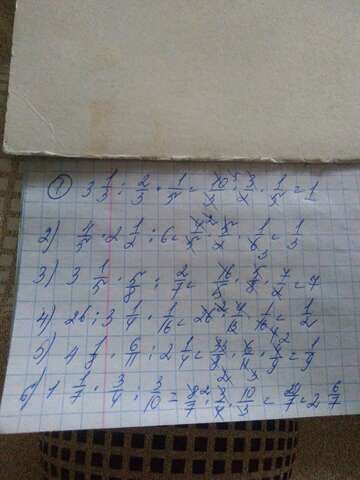 1) 3 1/3 : 2/3 · 1/5 = 10/3 · 3/2 · 1/5 = 1
2) 4/5 · 2 1/2 : 6 = 4/5 · 5/2 · 1/6 = 1/3
3) 3 1/5 · 5/8 : 2/7 = 16/5 · 5/8 · 7/2 = 7
4) 26 : 3 1/4 · 1/16 = 26 · 4/13 · 1/16 = 1/2
5) 4 1/8 · 6/11 : 2 1/4 = 33/8 · 6/11 · 4/9 = 1/9
6) 1 1/7 · 3/4 : 3/10 = 8/7 · 3/4 · 10/3 = 20/7 = 2 6/7